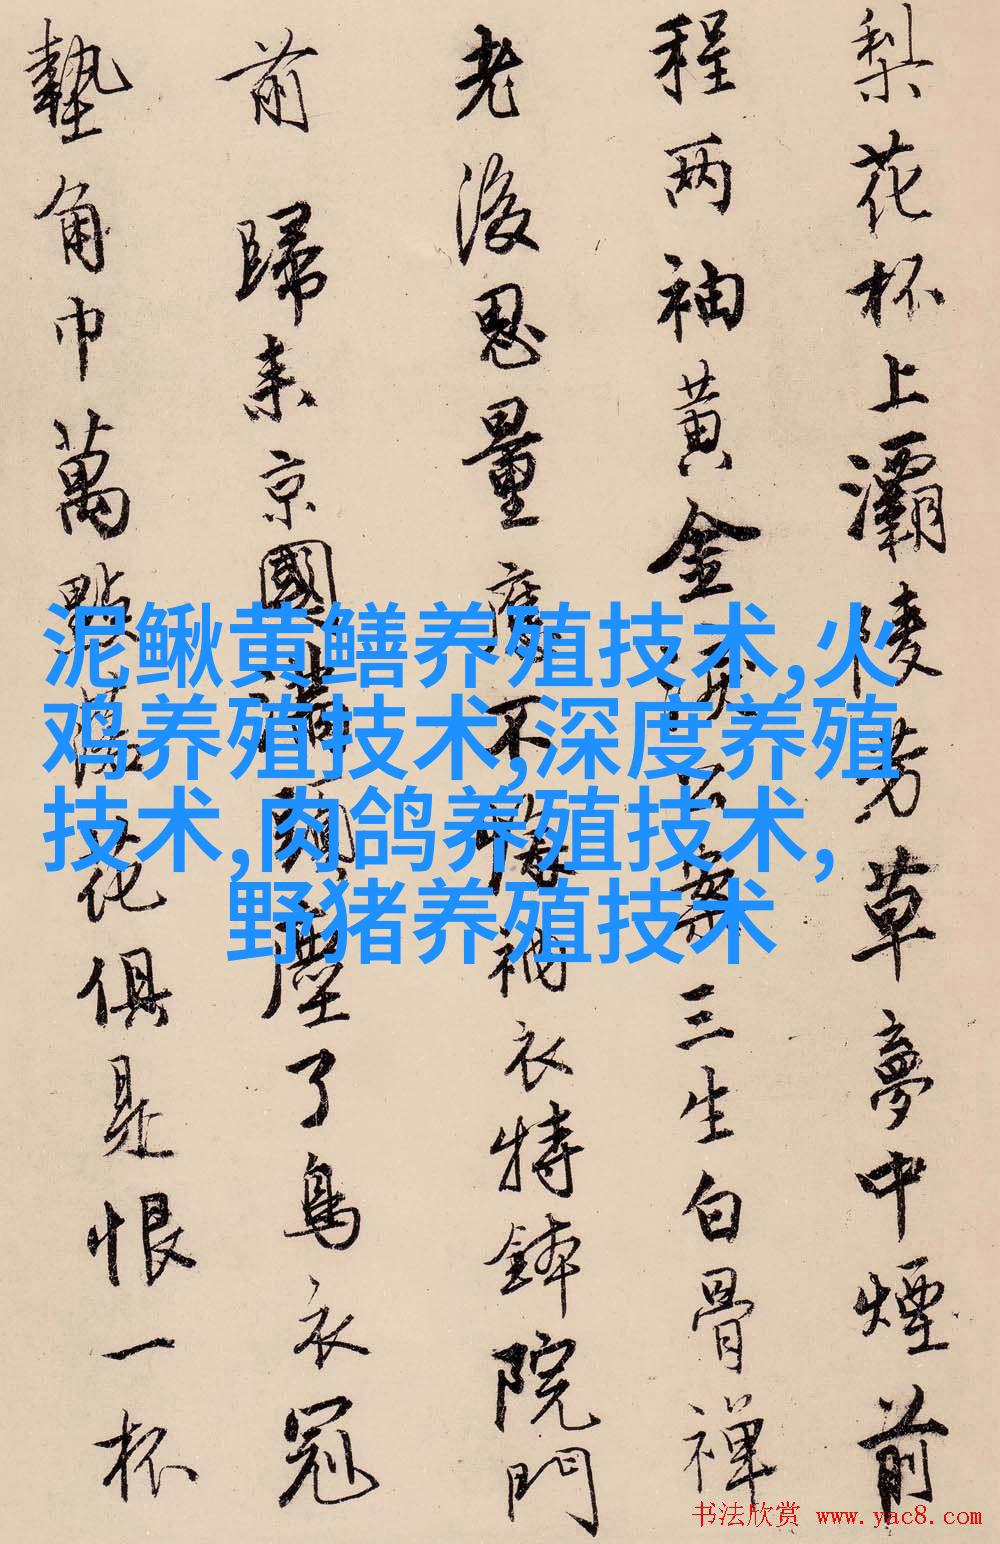 梨花杯上灞陵芳草夢中煙前
程两袖黄金淚公案三生白骨禪
老後思量應不悔衲衣持鉢院門
前 歸来京國頭塵了烏衣冠
墊角巾萬點落花俱是恨一杯
泥鳅黄鳝养殖技术,火
鸡养殖技术,深度养殖
技术,肉鸽养殖技术,
野猪养殖技术
书法欣赏 www.yac8.com